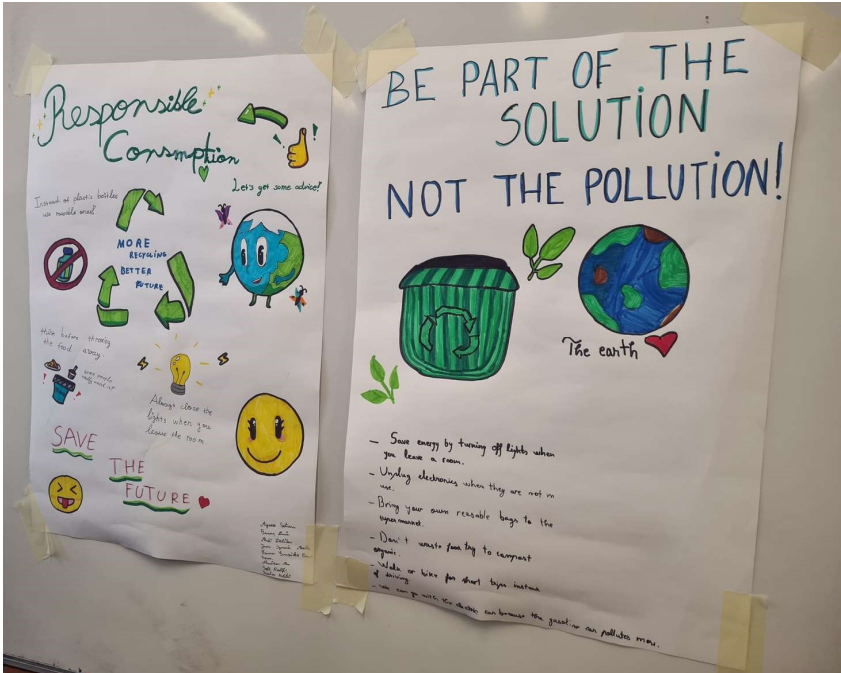 Responsible
Consmption
Let's get some advice!
Instead of plastic bottles
use reusable ones!
MORE
RECYCLING
BETTER
FUTURE
think before throwing
the food away.
some people
really need it!
Always close the
lights when you
leave the room.
SAVE
THE
FUTURE
BE PART OF THE
SOLUTION
NOT THE POLLUTION!
The earth
- Save energy by turning off lights when
you leave a room.
- Unplug electronics when they are not in
use.
- Bring your own reusable bags to the
supermarket.
- Don't waste food try to compost
organic.
- Walk or bike for short trips instead
of driving
- We can go with the electric car because the gasoline car pollutes more.